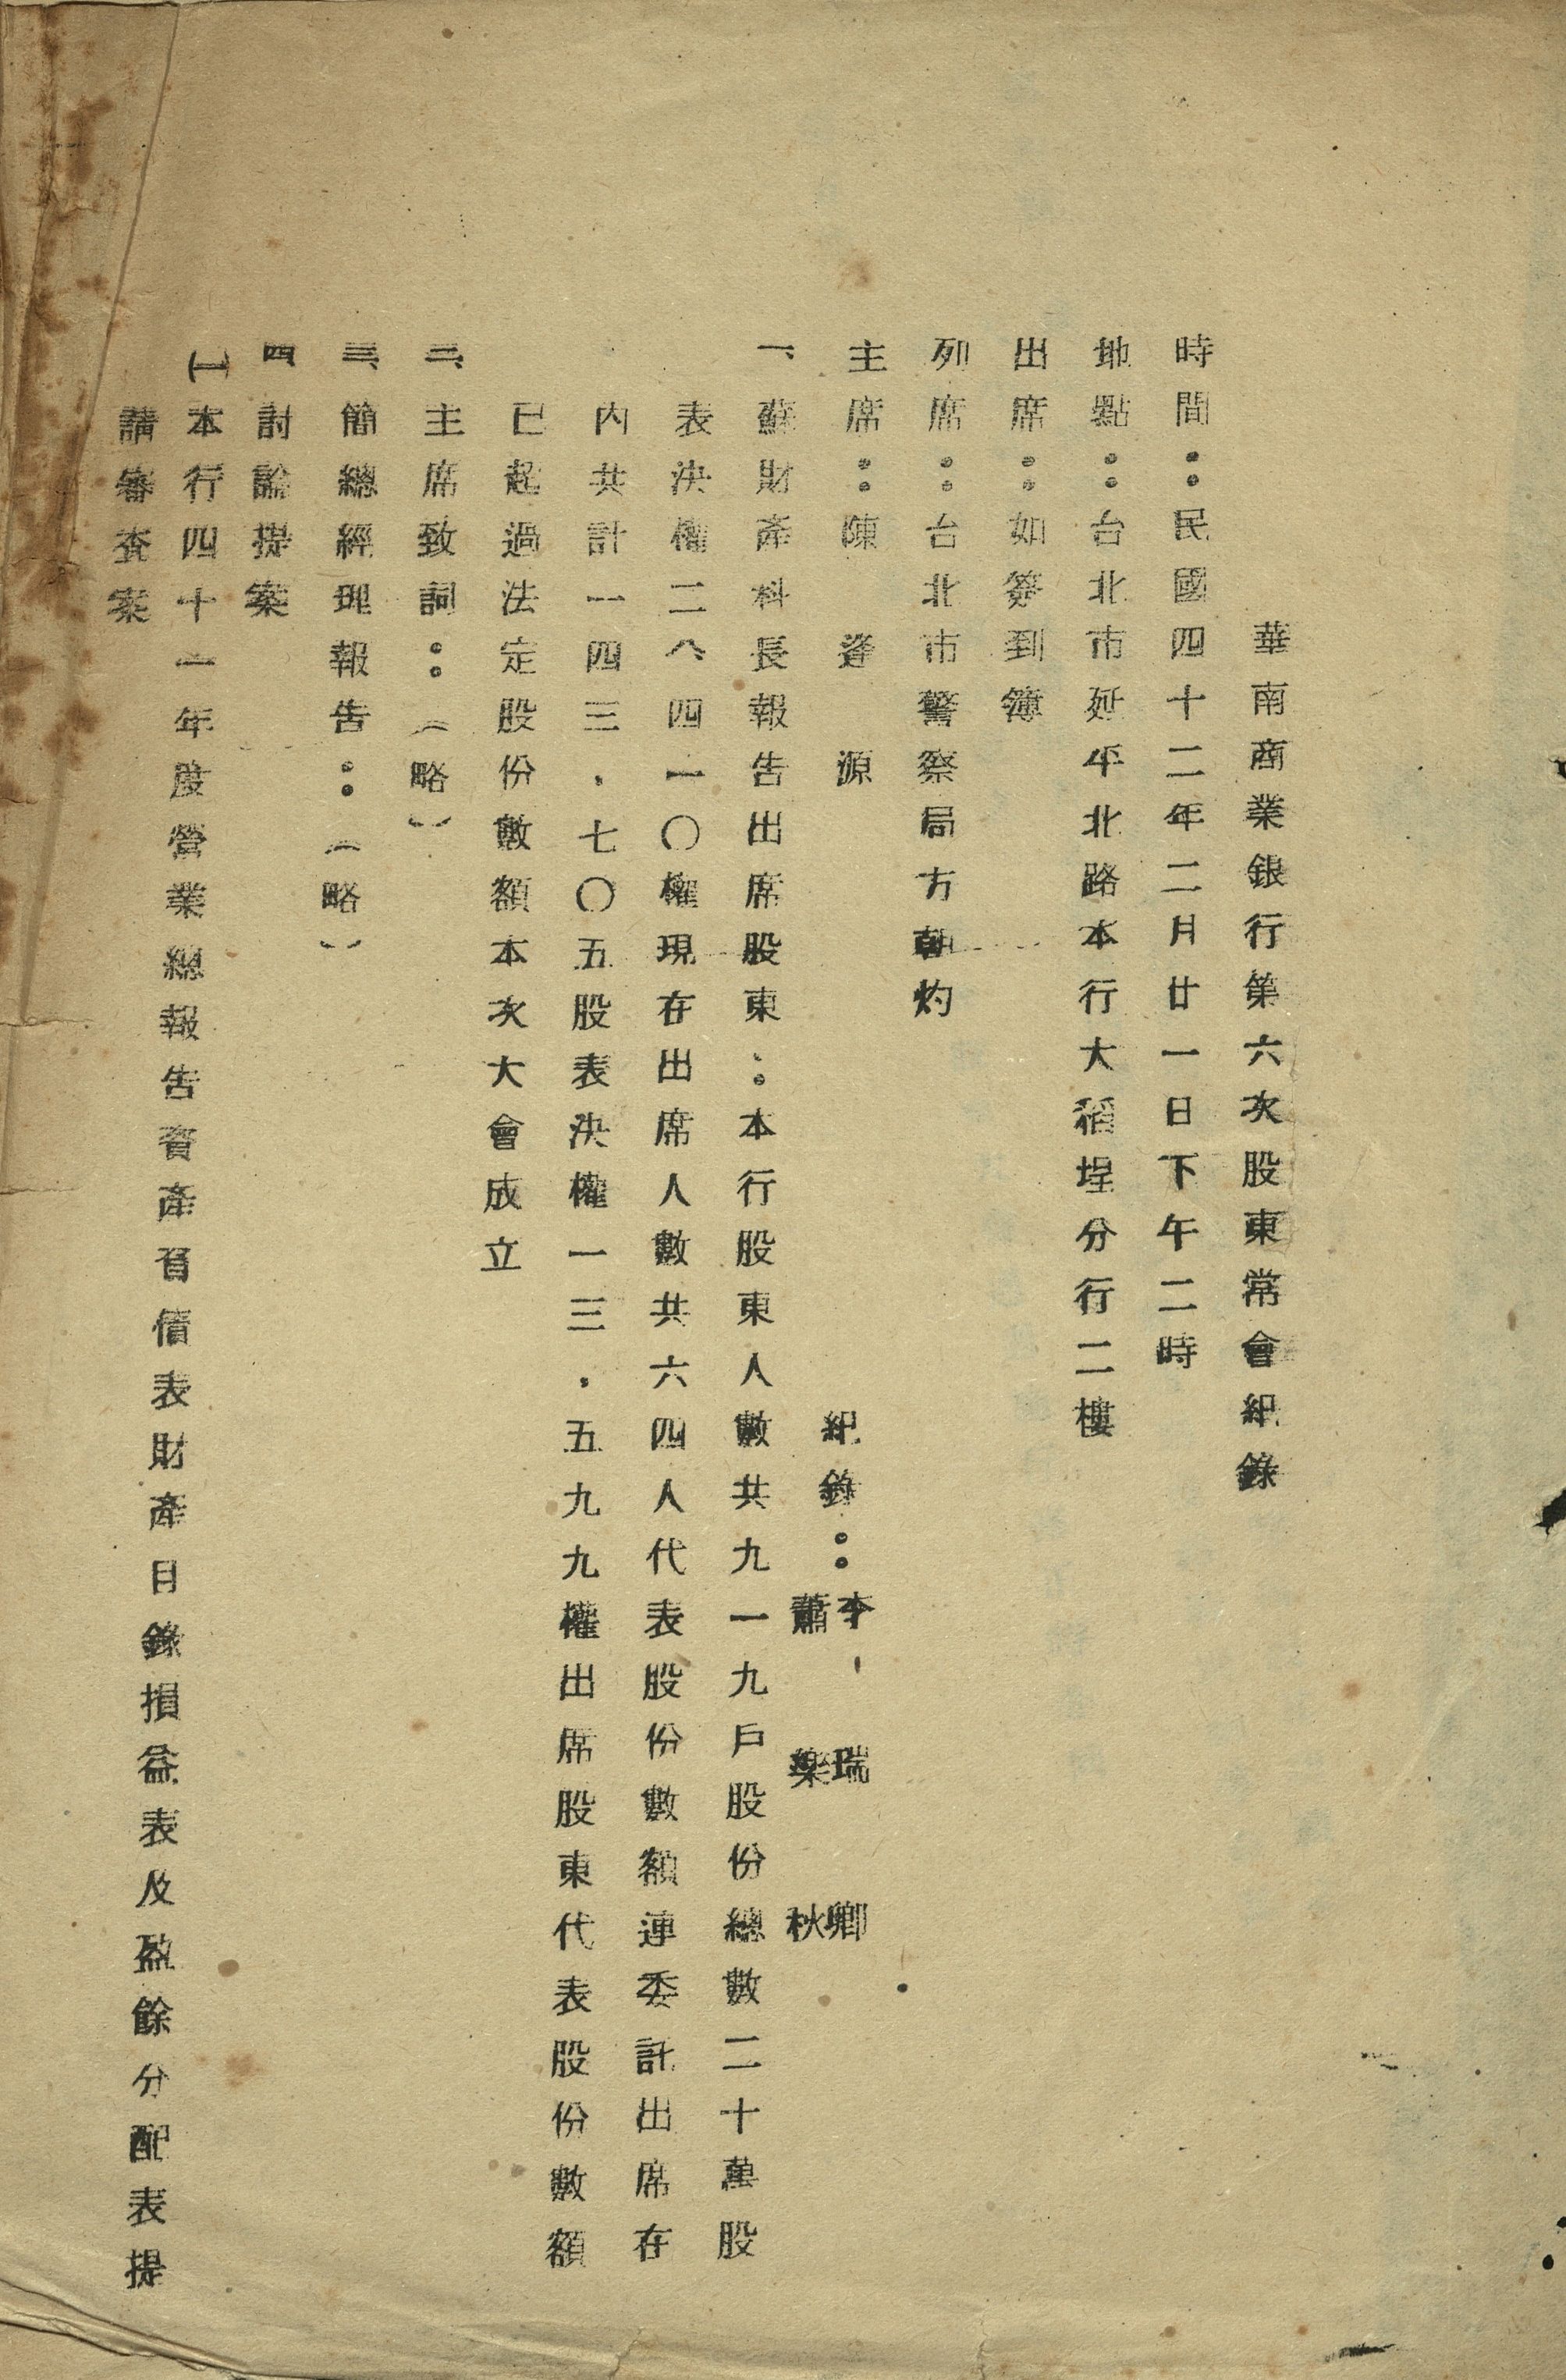 華南商業銀行第六次股東常會紀錄
時間：民國四十二年二月廿一日下午二時
地點：台北市延平北路本行大稻埕分行二樓
出席：如簽到簿
列席：台北市警察局方朝灼
主席：陳逢源
紀錄：李瑞卿
蕭樂秋
一、蘇財產科長報告出席股東：本行股東人數共九一九戶股份總數二十萬股
表決權二八四一〇權現在出席人數共六四人代表股份數額連委託出席在
內共計一四三．七〇五股表決權一三．五九九權出席股東代表股份數額
已超過法定股份數額本次大會成立
二、主席致詞：（略）
三、簡總經理報告：（略）
四、討論提案
(一)本行四十一年度營業總報告資產負債表財產目錄損益表及盈餘分配表提
請審查案